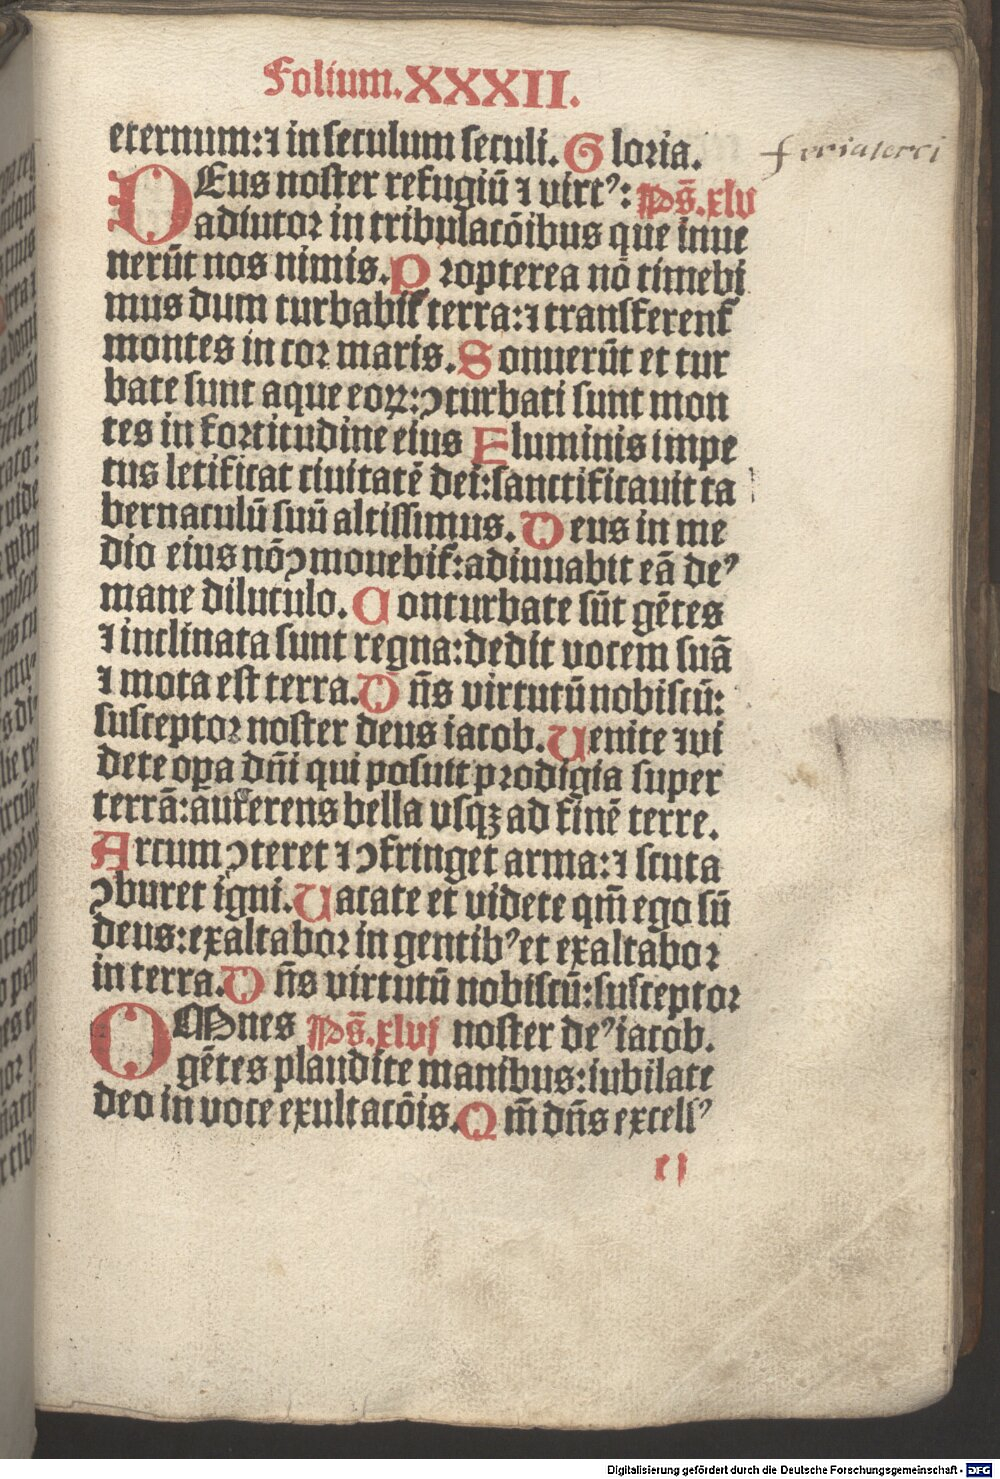 Folium.XXXII.
eternum:⁊ in seculum seculi. Gloria.
DEus noster refugiū ⁊ virtꝰ: Ps̄.xlv
adiutor in tribulacōibus que inue
nerūt nos nimis. Propterea nō timebi
mus dum turbabit͛ terra:⁊ transferent͛
montes in cor maris. Sonuerūt et tur
bate sunt aque eoꝝ:ꝯturbati sunt mon
tes in fortitudine eius Fluminis impe
tus letificat ciuitatē dei:sanctificauit ta
bernaculū suū altissimus. Deus in me
dio eius nō ꝯmouebit͛:adiuuabit eā deꝰ
mane diluculo. Conturbate sūt gētes
⁊ inclinata sunt regna:dedit vocem suā
⁊ mota est terra. Dn̄s virtutū nobiscū:
susceptor noster deus iacob. Uenite ⁊ vi
dete oꝑa dn̄i qui posuit prodigia super
terrā:auferens bella vsqꝫ ad finē terre.
Arcum ꝯteret ⁊ ꝯfringet arma:⁊ scuta
ꝯburet igni. Uacate et videte qm̄ ego sū
deus:exaltabor in gentibꝰ et exaltabor
in terra. Dn̄s virtutū nobiscū:susceptor
OMnes Ps̄.xlvj noster deꝰ iacob.
gētes plaudite manibus:iubilate
deo in voce exultacōis. Qm̄ dn̄s excelsꝰ
ej
Digitalisierung gefördert durch die Deutsche Forschungsgemeinschaft - DFG